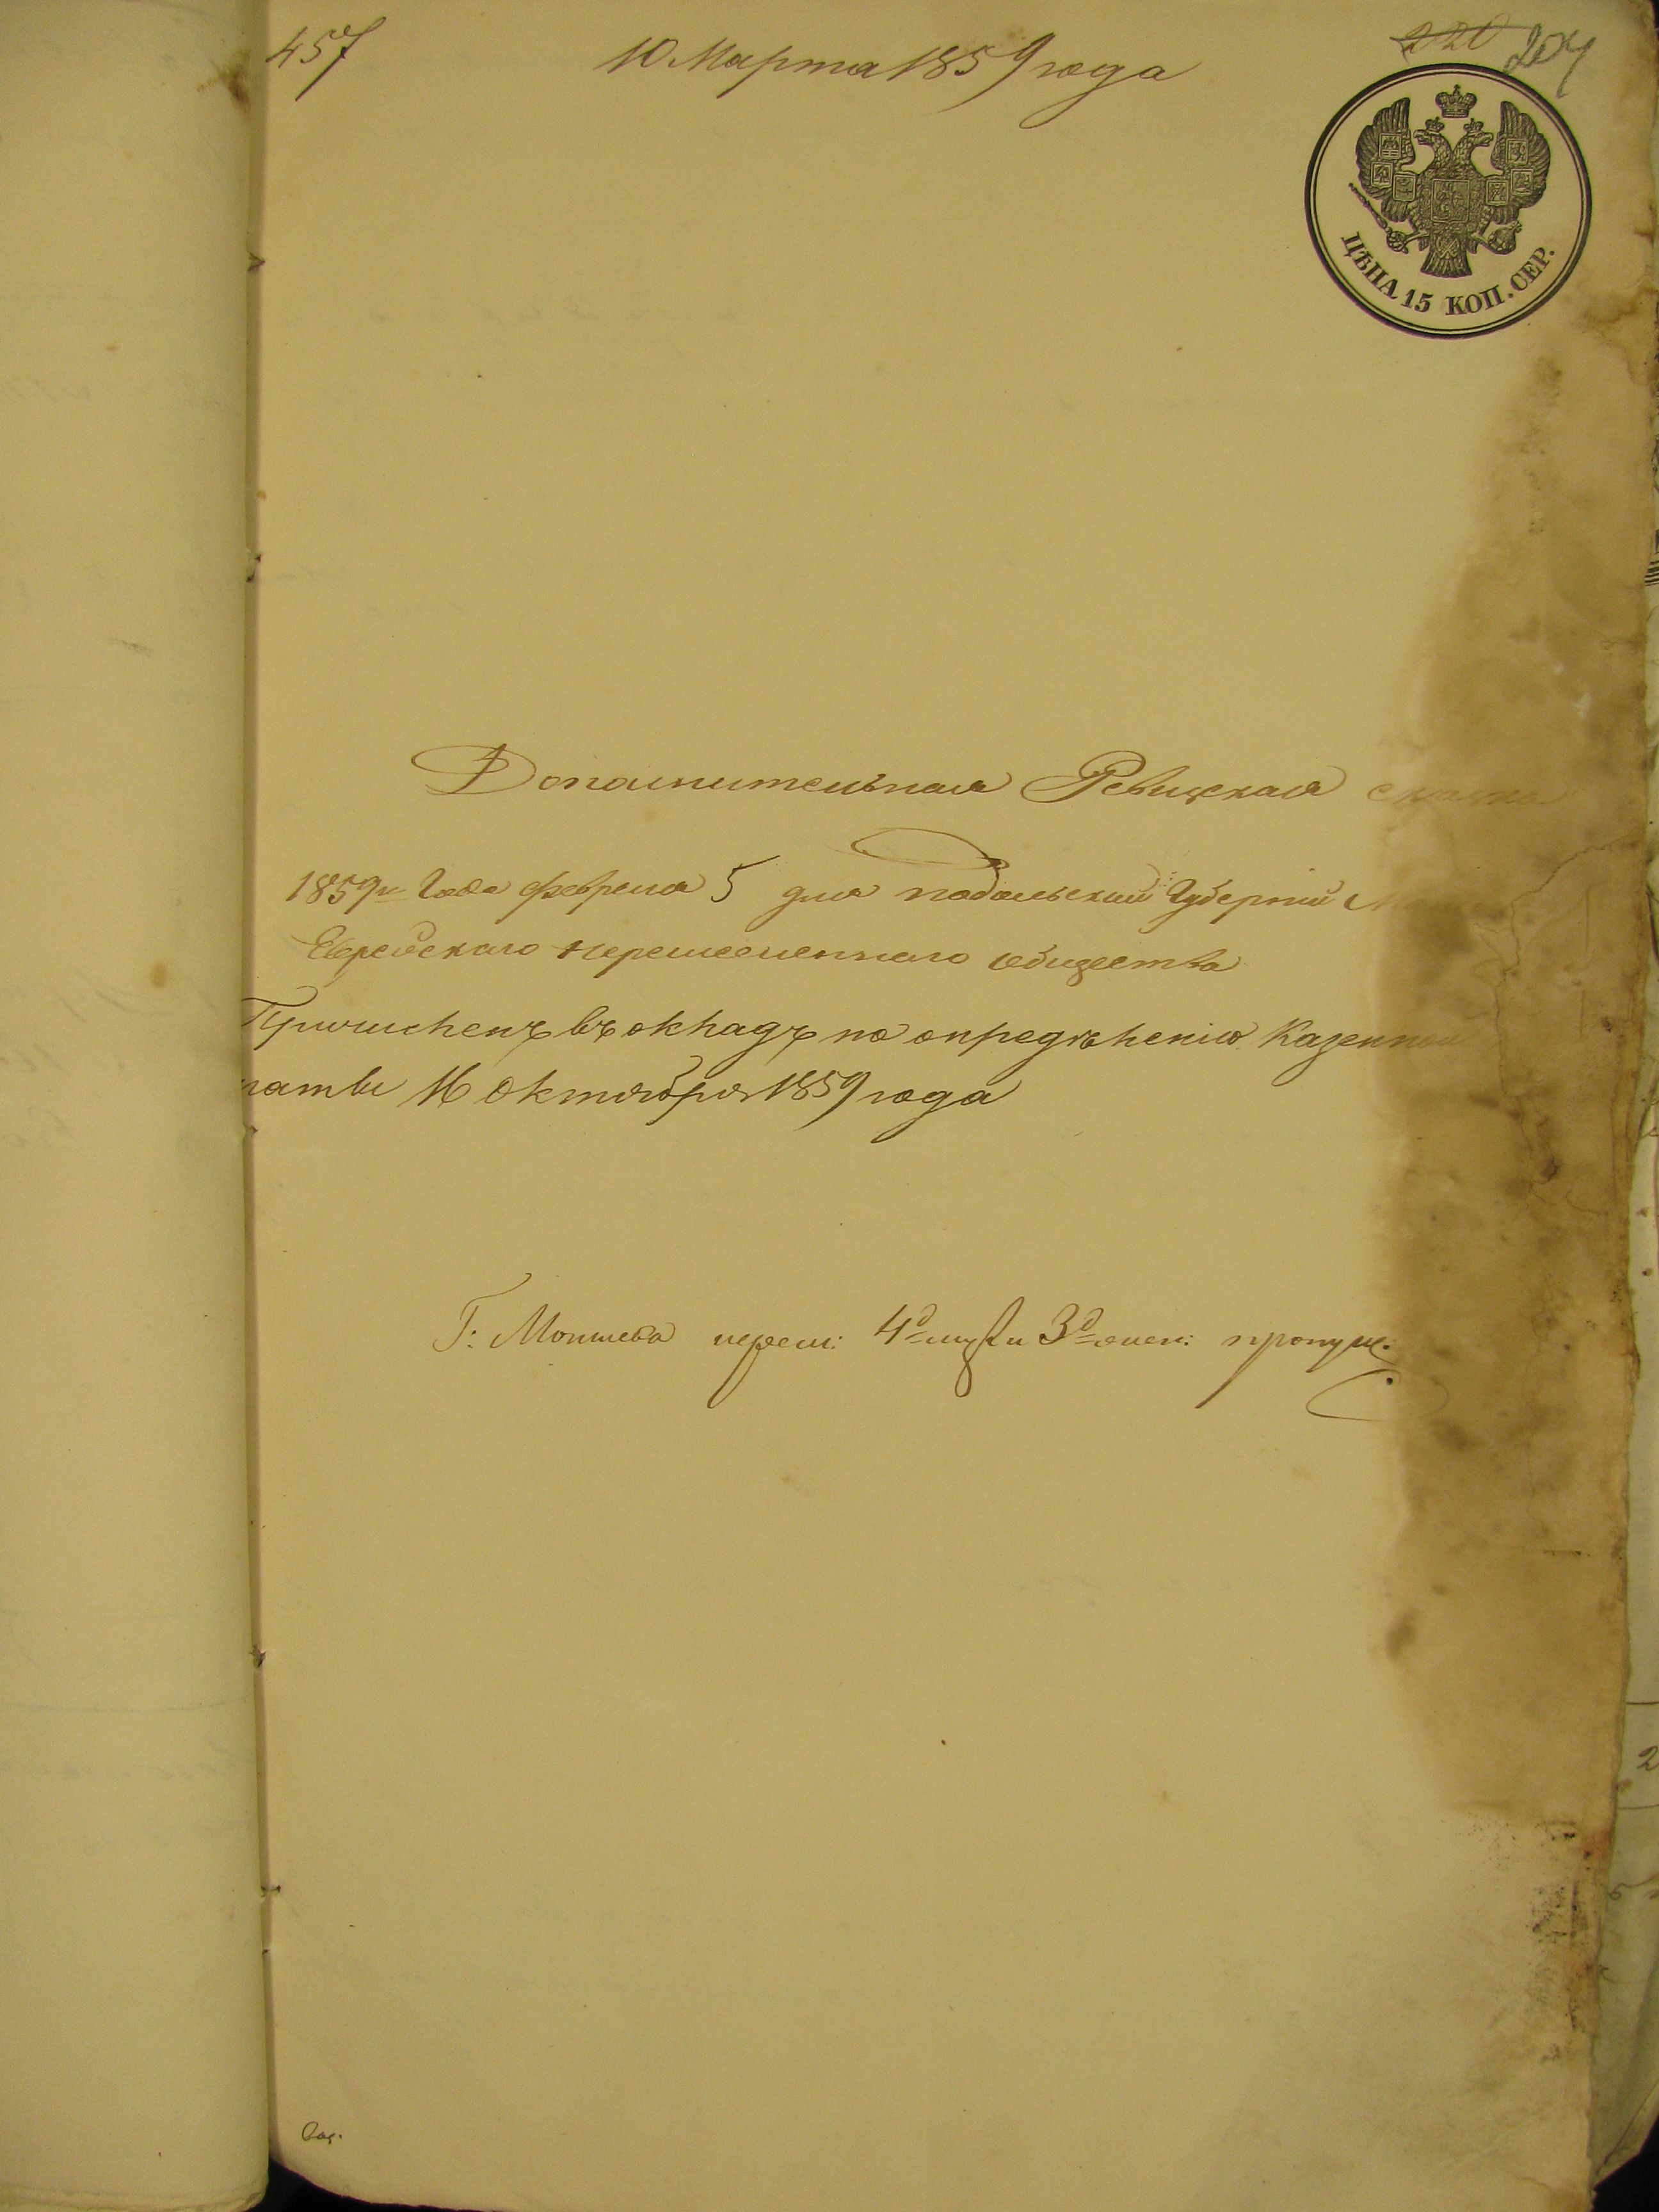 457
10 Марта 1859 года
220 204
ЦѢНА 15 КОП. СЕР.
Дополнительная Ревизская сказка
1859го Года февраля 5 дня подольский Губернии
Еврейского мещанского общества
Причисленъ въ окладъ по опредѣленію Казенной
латы 16 Октября 1859 года
Г: Могилева мужеи 3 пропуще: